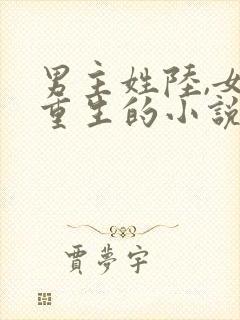 男主姓陸,女
重生的小說
賈夢宇